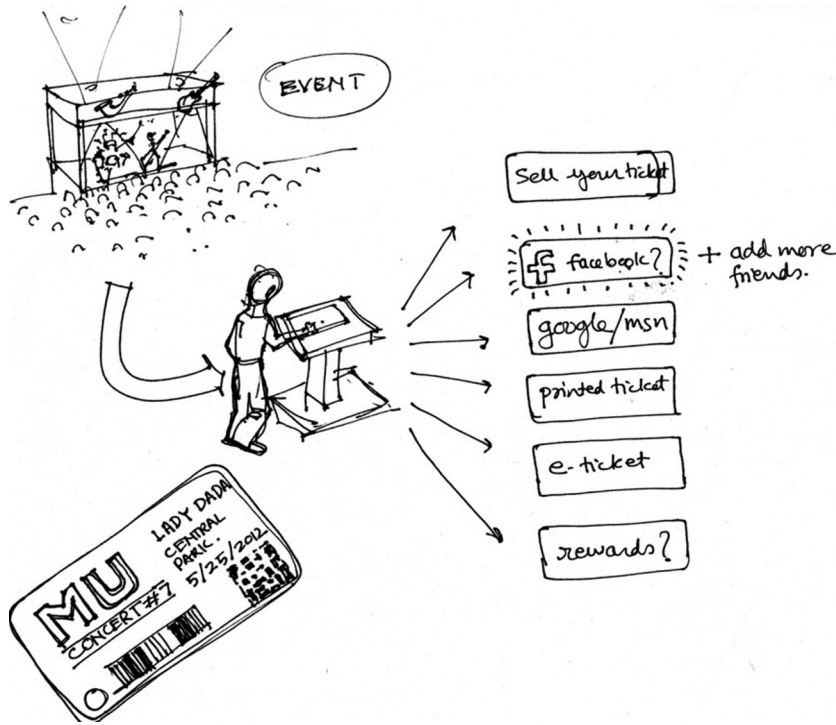 EVENT
Sell your ticket
f facebook?
+ add more
friends.
google/msn
printed ticket
e-ticket
rewards?
LADY DADA
CENTRAL
PARK.
5/25/2012
MU
CONCERT #7